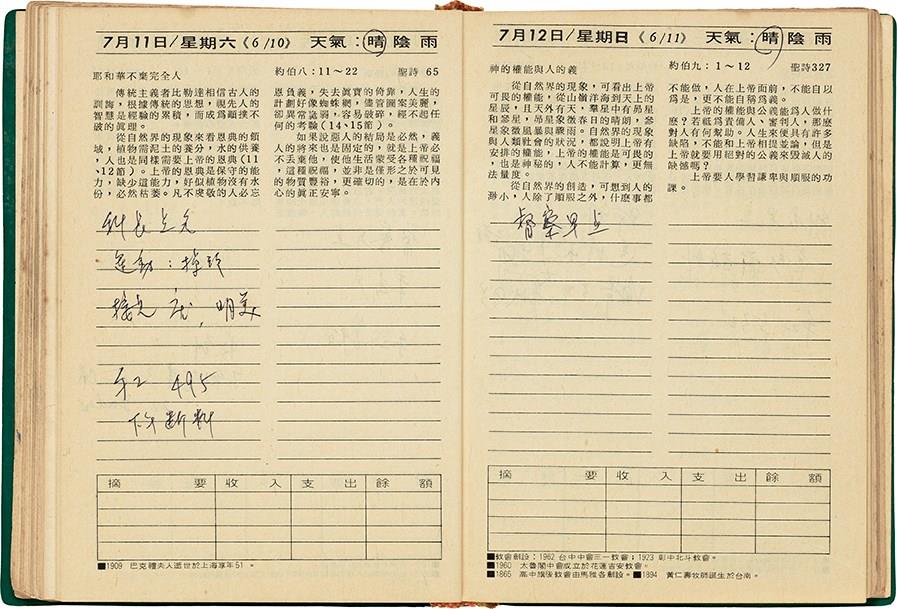 7月11日/星期六《6/10》 天氣：晴 陰 雨
耶和華不棄完全人 約伯八：11～22 聖詩 65
傳統主義者比勒達相信古人的
訓誨，根據傳統的思想，視先人的
智慧是經驗的累積，而成爲顚撲不
破的眞理。
從自然界的現象來看恩典的領
域，植物需泥土的養分，水的供養
，人也是同樣需要上帝的恩典(11
-12節)。上帝的恩典是保守的能
力，缺少這能力，好似植物沒有水
份，必然枯萎。凡不虔敬的人必忘
恩負義，失去眞實的倚靠，人生的
計劃好像蜘蛛網，儘管圖案美麗，
卻異常脆弱，容易破碎，經不起任
何的考驗(14、15節)。
如果說惡人的結局是必然，義
人的將來也是固定的，就是上帝必
不丟棄他，使他生活蒙受各種祝福
，這種祝福，並非僅僅形之於可見
的物質豐裕，更確切的，是在於內
心的眞正安寧。
科長上元
運動：排球
明美
495
摘要 收入 支出 餘額
■1909 巴克禮夫人逝世於上海享年51。
7月12日/星期日《6/11》 天氣：晴 陰 雨
神的權能與人的義 約伯九：1～12 聖詩327
從自然界的現象，可看出上帝
可畏的權能，從山嶺洋海到天上的
星辰，且天外有天，羣星中有昴星
和參星，昴星象徵春日的晴朗，參
星象徵風暴與驟雨。自然界的現象
與人類社會的狀況，都說明上帝有
安排的權能，上帝的權能是可畏的
，也是神秘的，人不能計算，更無
法量度。
從自然界的創造，可想到人的
渺小，人除了順服之外，什麼事都
不能做，人在上帝面前，不能自以
爲是，更不能自稱爲義。
上帝的權能與公義能爲人做什
麼？若祇爲責備人、審判人，那麼
對人有何幫助。人生來便具有許多
缺陷，不能和上帝相提並論，但是
上帝就要用絕對的公義來毀滅人的
缺憾嗎？
上帝要人學習謙卑與順服的功
課。
督察早上
摘要 收入 支出 餘額
■教會創設：1962 台中中會三一教會；1923 彰中北斗教會。
■1960 太魯閣中會成立於花蓮吉安教會。
■1865 高中旗後教會由馬雅各創設。■1894 黃仁壽牧師誕生於台南。